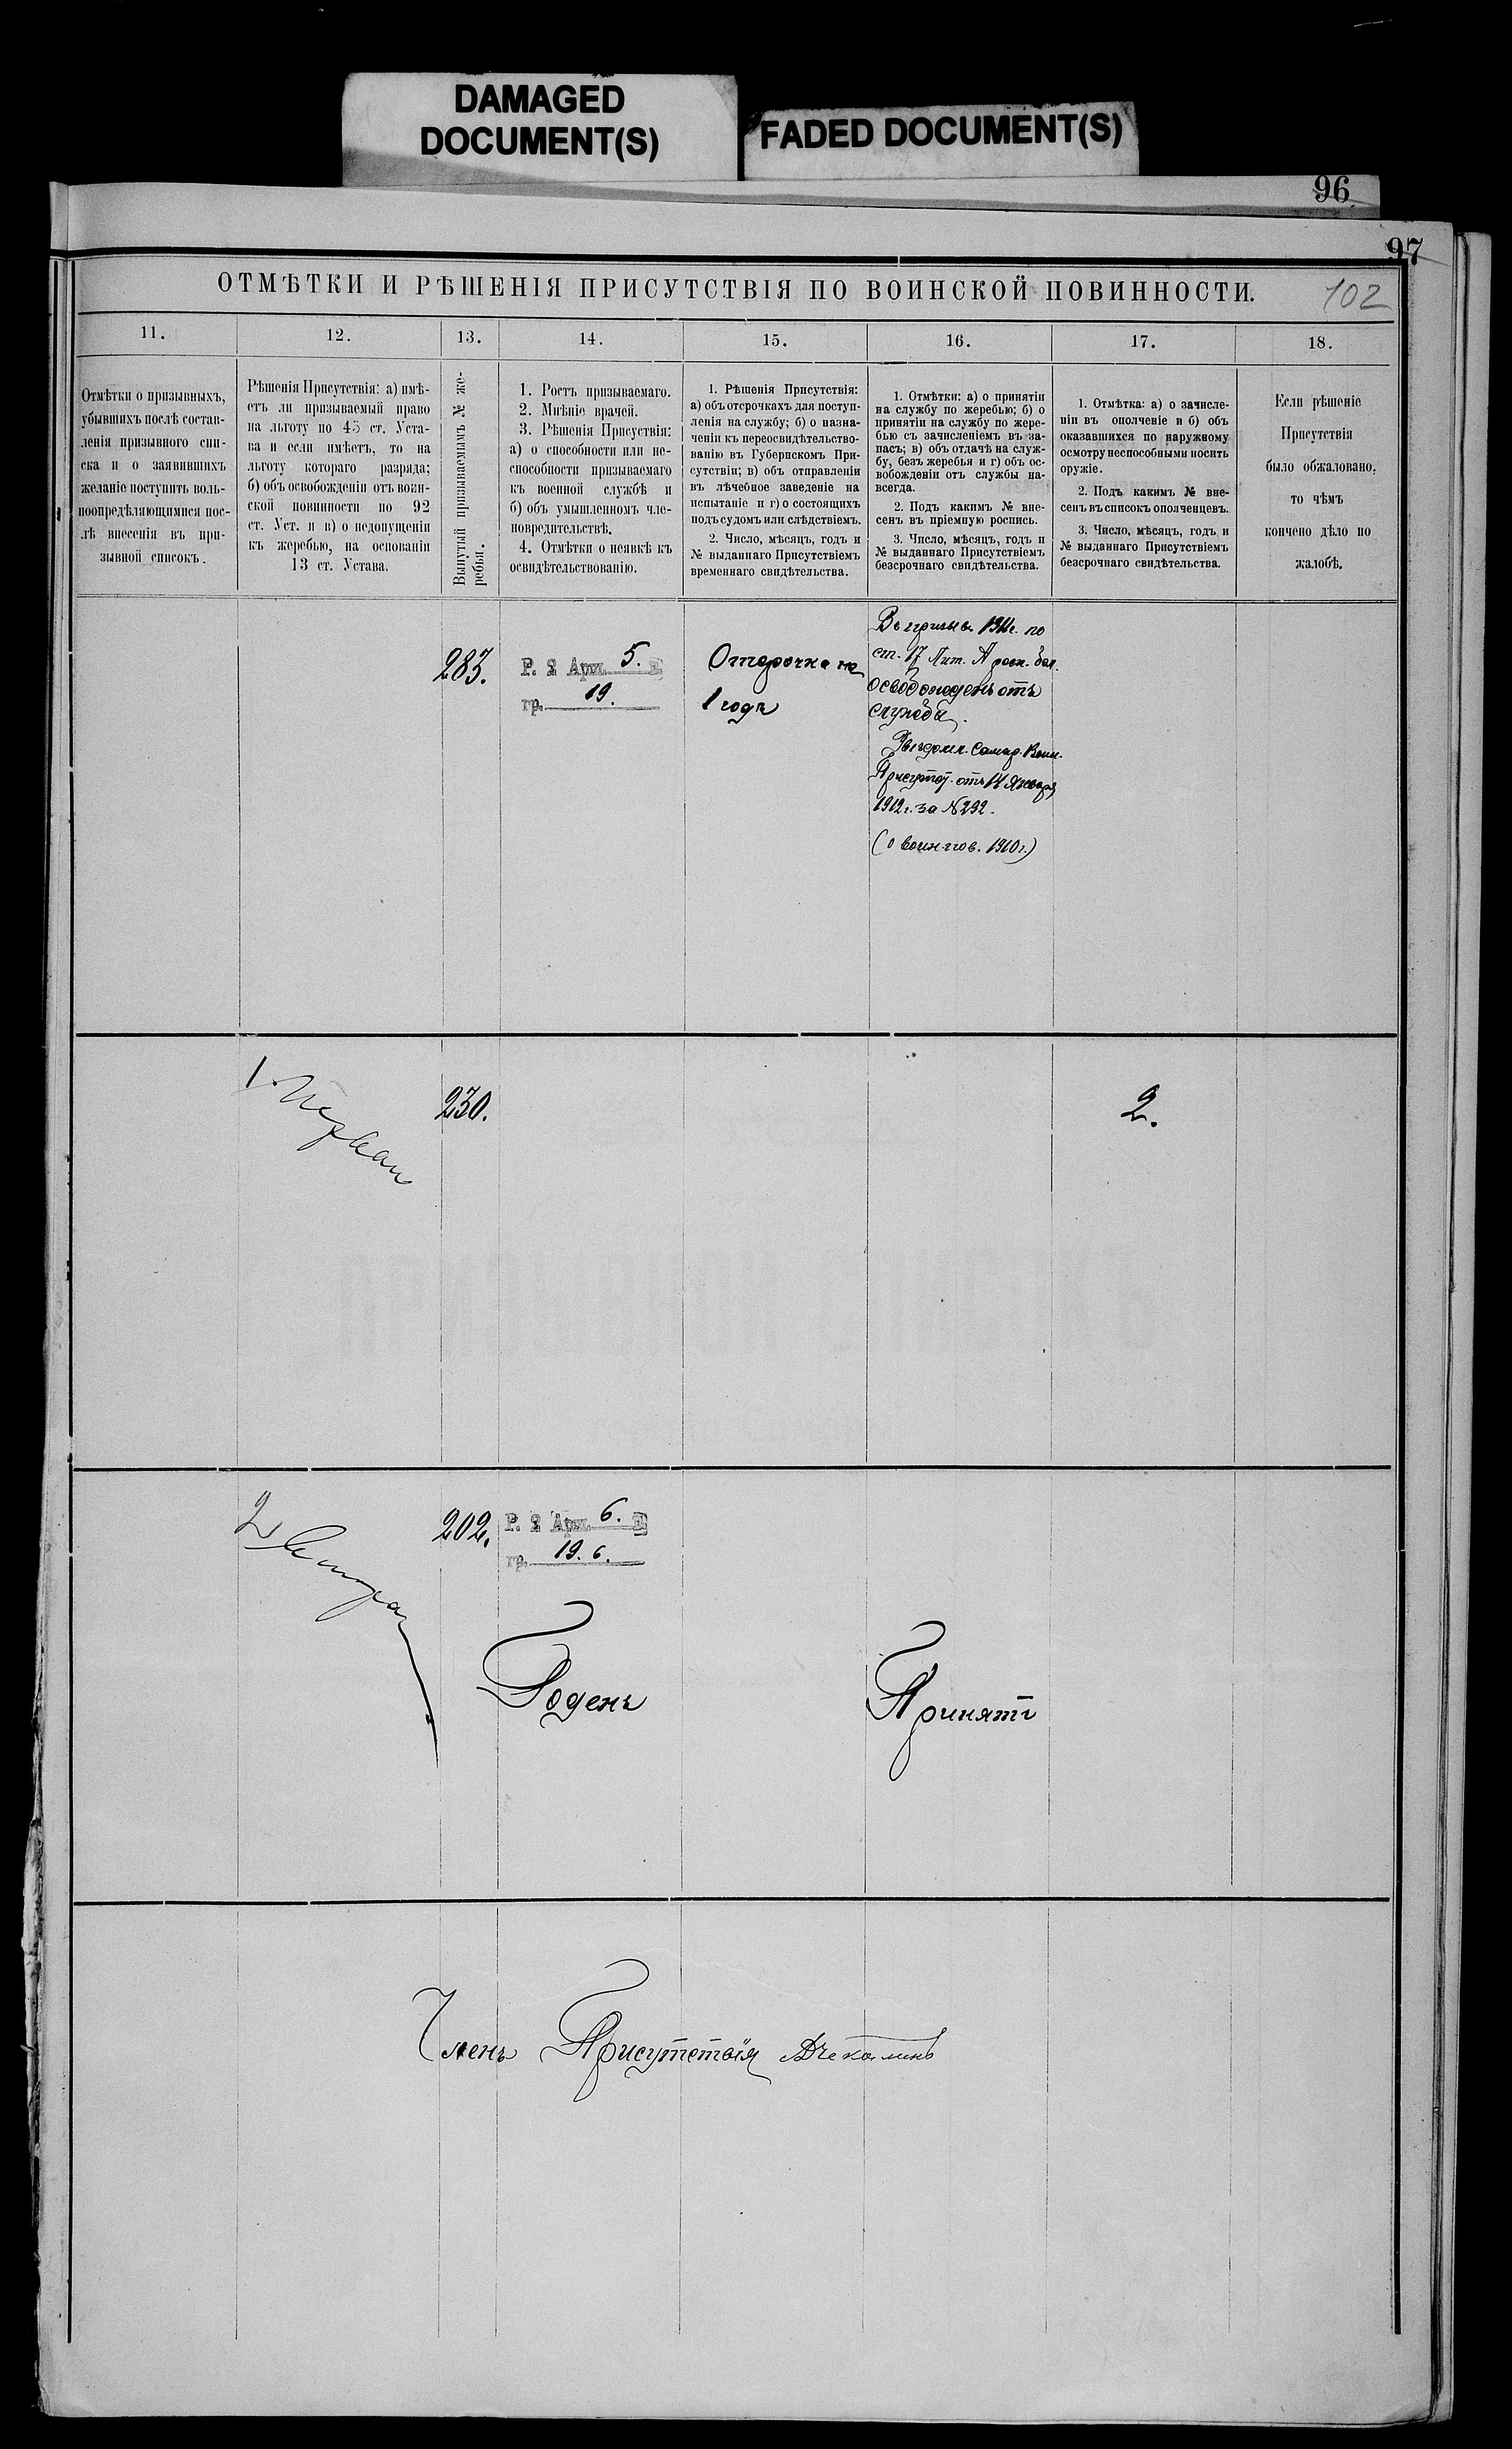 DAMAGED
DOCUMENT(S)
FADED DOCUMENT(S)
96
97
ОТМѢТКИ И РѢШЕНІЯ ПРИСУТСТВІЯ ПО ВОИНСКОЙ ПОВИННОСТИ.
102
11.
12.
13.
14.
15.
16.
17.
18.
Отмѣтки о призывныхъ,
убывшихъ послѣ состав-
ленія призывного спи-
ска и о заявившихъ
желаніе поступить воль-
ноопредѣляющимися пос-
лѣ внесенія въ при-
зывной списокъ.
Рѣшенія Присутствія: а) имѣ-
етъ ли призываемый право
на льготу по 45 ст. Уста-
ва и если имѣетъ, то на
льготу котораго разряда;
б) объ освобожденіи отъ воин-
ской повинности по 92
ст. Уст. и в) о недопущеніи
къ жеребью, на основаніи
13 ст. Устава.
Вынутый призываемымъ № же-
ребья.
1. Ростъ призываемаго.
2. Мнѣніе врачей.
3. Рѣшенія Присуствія:
а) о способности или не-
способности призываемаго
къ военной службѣ и
б) объ умышленномъ чле-
новредительствѣ.
4. Отмѣтки о неявкѣ къ
освидѣтельствованію.
1. Рѣшенія Присутствія:
а) объ отсрочкахъ для поступ-
ленія на службу; б) о назна-
ченіи къ переосвидѣтельство-
ванію въ Губернскомъ При-
сутствіи; в) объ отправленіи
въ лѣчебное заведеніе на
испытаніе и г) о состоящихъ
подъ судомъ или слѣдствіемъ.
2. Число, мѣсяцъ, годъ и
№ выданнаго Присутствіемъ
временнаго свидѣтельства.
1. Отмѣтки: а) о принятіи
на службу по жеребью; б) о
принятіи на службу по жере-
бью съ зачисленіемъ въ за-
пасъ; в) объ отдачѣ на служ-
бу, безъ жеребья и г) объ ос-
вобожденіи отъ службы на-
всегда.
2. Подъ какимъ № вне-
сенъ въ пріемную роспись.
3. Число, мѣсяцъ, годъ и
№ выданнаго Присутствіемъ
безсрочнаго свидѣтельства.
1. Отмѣтка: а) о зачисле-
ніи въ ополченіе и б) объ
оказавшихся по наружному
осмотру неспособными носить
оружіе.
2. Подъ какимъ № вне-
сенъ въ списокъ ополченцевъ.
3. Число, мѣсяцъ, годъ и
№ выданнаго Присутствіемъ
безсрочнаго свидѣтельства.
Если рѣшеніе
Присутствія
было обжаловано,
то чѣмъ
кончено дѣло по
жалобѣ.
283.
Р. 2 Арш. 5. В
гр. 19.
Отсрочка на
1 годъ
Въ призывъ 1911г. по
ст. 17 Лит. А росп. бол.
освобожденъ отъ
службы.
Увѣдомл. Самар. Воин.
Присутст. отъ 14 Января
1912 г. за № 292.
(о воин. пов. 1910 г.)
1 Первая
230.
2.
2 Вторая
202.
Р. 2 Арш. 6. В
гр. 19. 6.
Годенъ
Принятъ
Членъ Присутствія